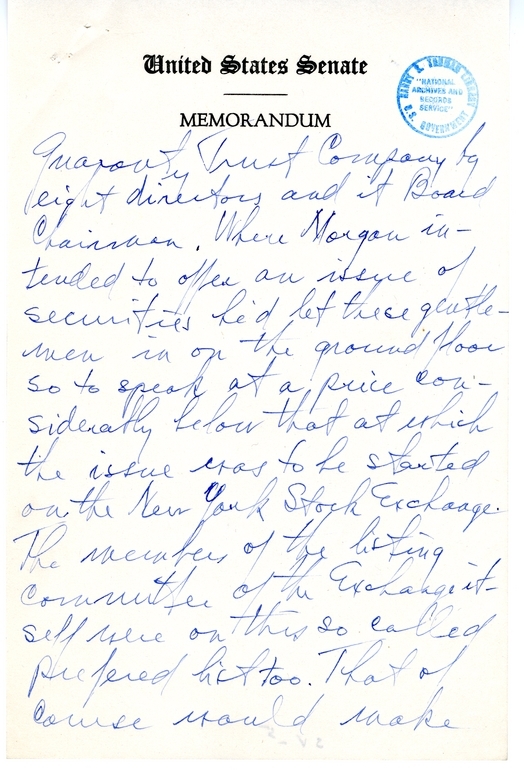 United States Senate
MEMORANDUM
HARRY S. TRUMAN LIBRARY
"NATIONAL
ARCHIVES AND
RECORDS
SERVICE"
U.S. GOVERNMENT
Guaranty Trust Company by
eight directors and it Board
Chairman. Where Morgan in-
tended to offer an issue of
securities he'd let these gentle-
men in on the ground floor
so to speak at a price con-
siderably below that at which
the issue was to be started
on the New York Stock Exchange.
The members of the listing
committee of the Exchange it-
self were on this so called
prefered list too. That of
course would make